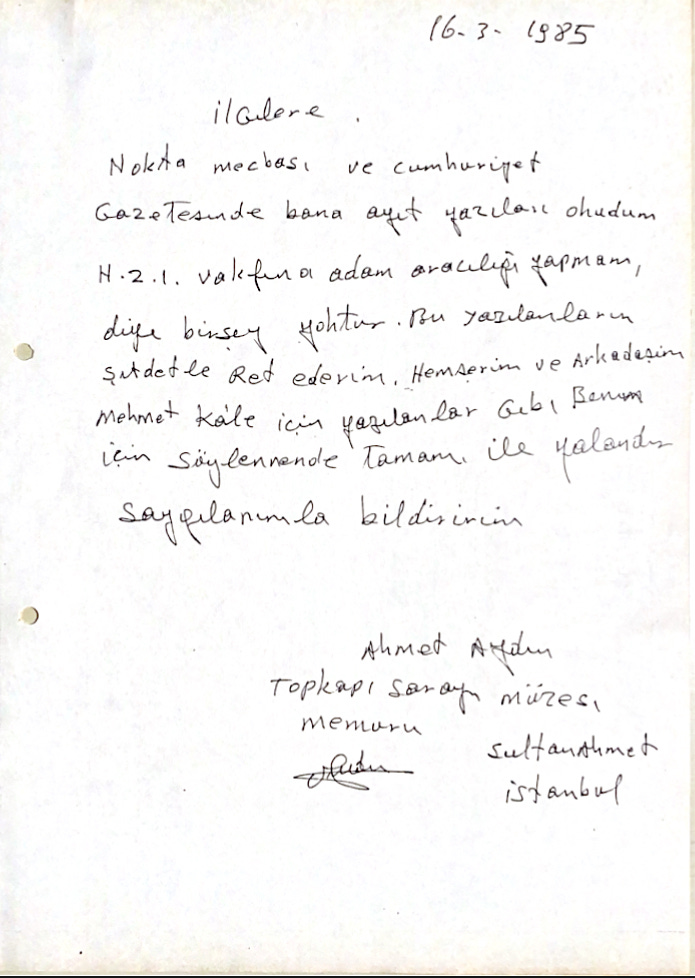 16-3-1985
ilGilere.
Nokta mecbası ve cumhuriyet
GazeTesinde bana ayıt yazıları okudum
H.Z.I. vakfına adam aracılığı yapmam,
diye birşey yoktur. Bu yazılanların
şitdetle Ret ederim. Hemşerim ve Arkadaşım
mehmet Kale için yazılanlar Gibi Benim
için söylennende Tamamı ile yalandır
saygılarımla bildiririm
Ahmet Aydın
Topkapı sarayı müzesi
memuru
sultanAhmet
istanbul